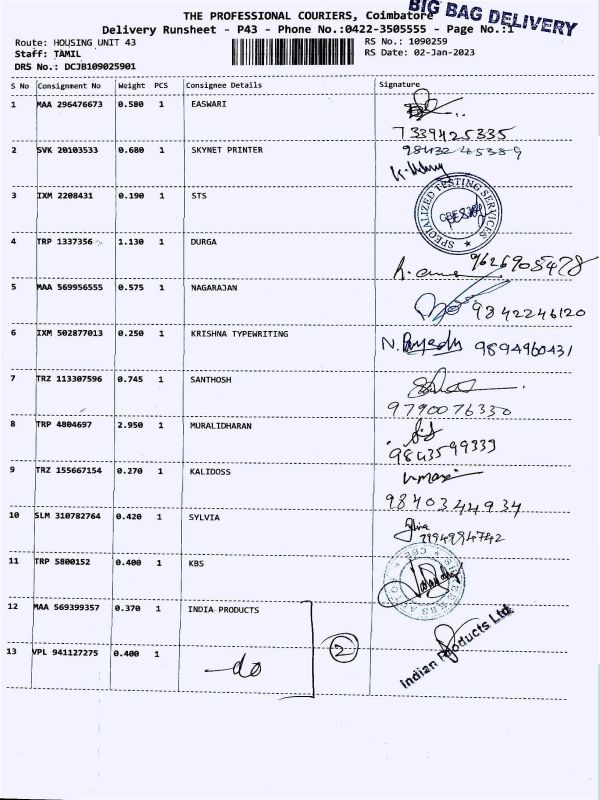 BIG BAG DELIVERY
THE PROFESSIONAL COURIERS, Coimbatore
Delivery Runsheet - P43 - Phone No.:0422-3505555 - Page No.:1
Route: HOUSING UNIT 43 RS No.: 1090259
Staff: TAMIL RS Date: 02-Jan-2023
DRS No.: DCJB109025901
S No Consignment No Weight PCS Consignee Details Signature
1 MAA 296476673 0.580 1 EASWARI
7339425335
2 SVK 20103533 0.680 1 SKYNET PRINTER
3 IXM 2208431 0.190 1 STS
SPECIALIZED TESTING SERVICES
4 TRP 1337356 1.130 1 DURGA
9626905478
5 MAA 569956555 0.575 1 NAGARAJAN
9842246120
6 IXM 502877013 0.250 1 KRISHNA TYPEWRITING
9894960431
7 TRZ 113307596 0.745 1 SANTHOSH
9790076330
8 TRP 4804697 2.950 1 MURALIDHARAN
9843599333
9 TRZ 155667154 0.270 1 KALIDOSS
9840344934
10 SLM 310782764 0.420 1 SYLVIA
11 TRP 5800152 0.400 1 KBS
12 MAA 569399357 0.370 1 INDIA PRODUCTS
Indian Products Ltd
13 VPL 941127275 0.400 1 do 2